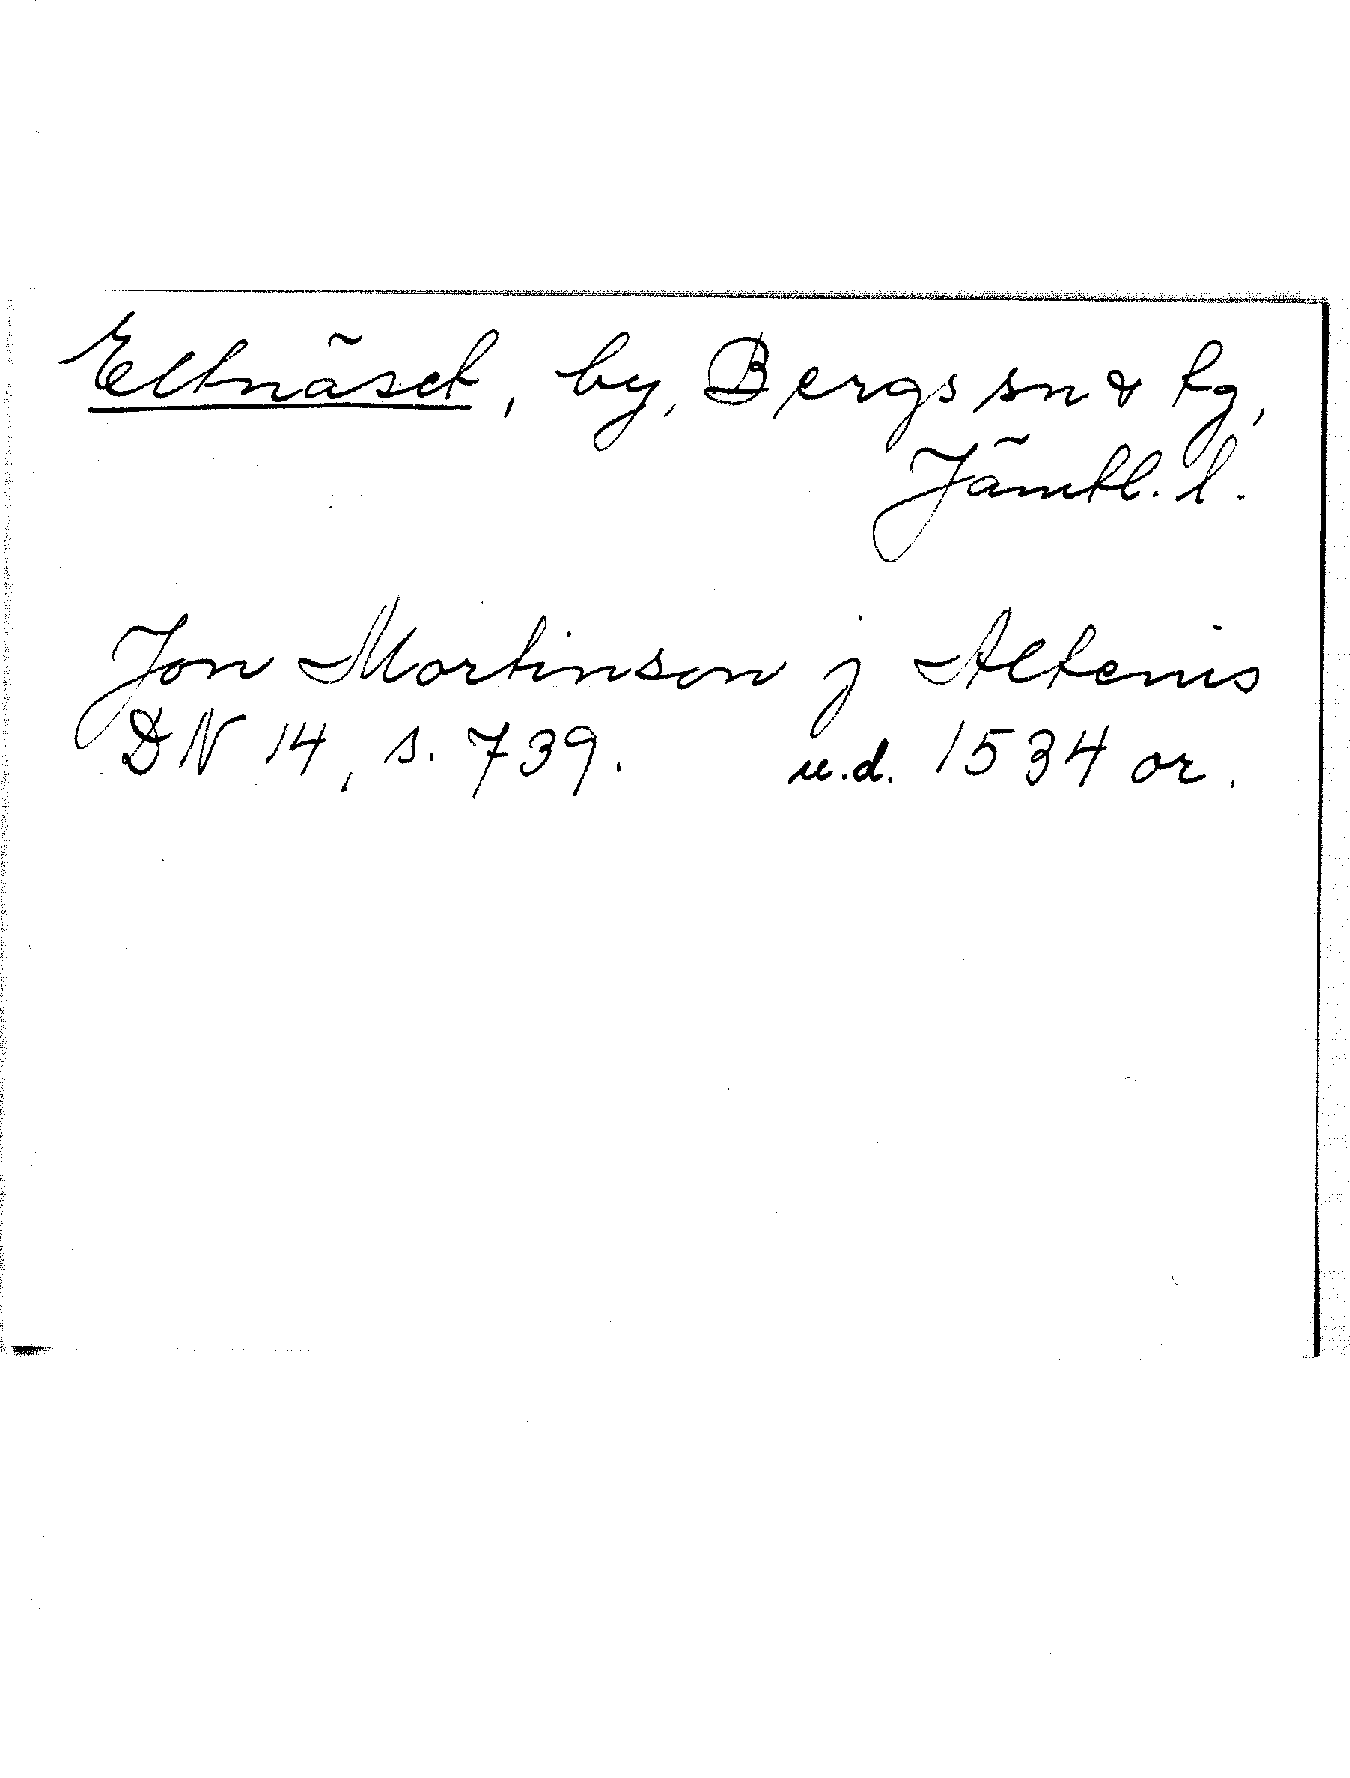 Eltnäset, by, Bergs sn & tg,
Jämtl. l.
Jon Mortinson j Altenis
DN 14, s. 739. u.d. 1534 or.